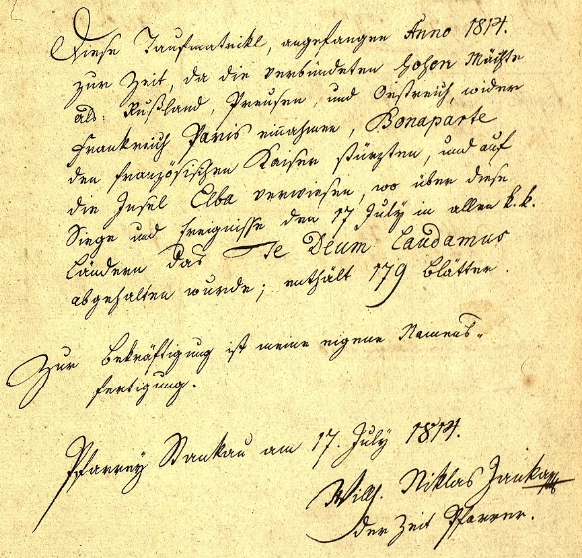 Diese Taufmatrikl, angefangen Anno 1814.
zur Zeit, da die verbündeten hohen Mächte
als: Rußland, Preusen, und Oestreich, wider
Frankriech Paris einnahmen, Bonaparte
den französischen Kaiser stürzten, und auf
die Insel Elba verwiesen, wo über diese
Siege und Ereignisse den 17 July in allen k. k.
Ländern das Te Deum Laudamus
abgehalten wurde; enthält 179 Blätter.
Zur Bekräftigung ist meine eigene Namens-
fertigung.
Pfarrey Stankau am 17. July 1814.
Wilh. Niklas
der Zeit Pfarrer.